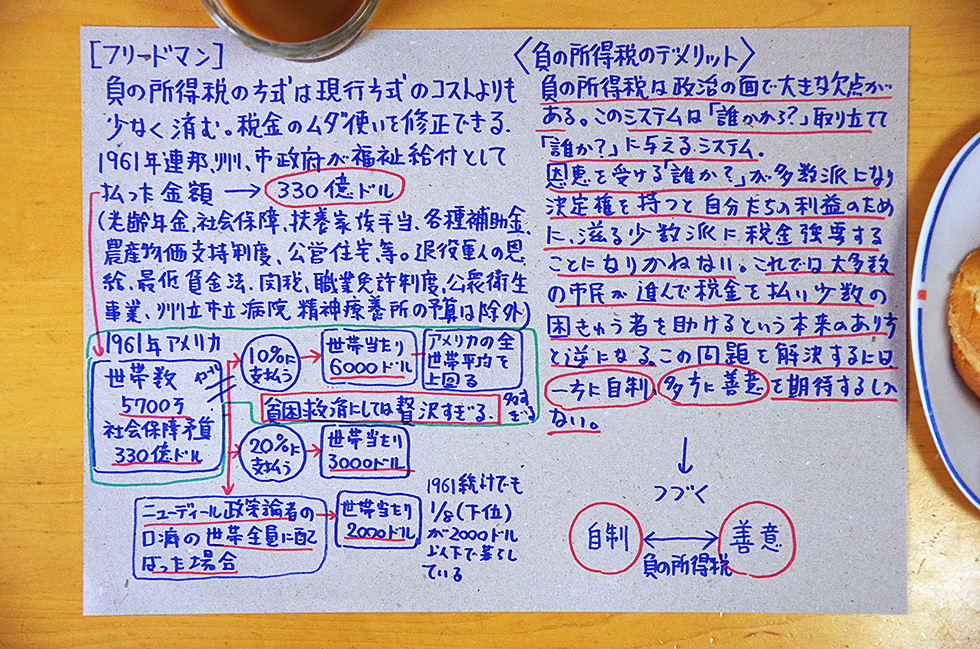 [フリードマン]
負の所得税の方式は現行方式のコストよりも
少なく済む。税金のムダ使いを修正できる.
1961年連邦、州、市政府が福祉給付として
払った金額 → 330億ドル
(老齢年金,社会保障、扶養家族手当、各種補助金、
農産物価支持制度、公営住宅、等。退役軍人の恩
給、最低賃金法、関税、職業免許制度、公衆衛生
事業、州立市立病院、精神療養所の予算は除外)
1961年アメリカ
世帯数
5700万
社会保障予算
330億ドル
10%に
支払う
世帯当たり
6000ドル
アメリカの全
世帯平均を
上回る
貧困救済にしては贅沢すぎる.
20%に
支払う
世帯当たり
3000ドル
ニューディール政策論者の
口癖の世帯全員に配
なった場合
世帯当たり
2000ドル
1961統計でも
1/8(下位)
が2000ドル
以下で暮らし
ている
〈負の所得税のデメリット〉
負の所得税は政治の面で大きな欠点が
ある。このシステムは「誰かから?」取り立てて
「誰か?」に与えるシステム.
恩恵を受ける「誰か?」が多数派になり
決定権を持つと自分たちの利益のため
に、渋る少数派に税金強要する
ことになりかねない。これでは大多数
の市民が進んで税金を払い少数の
困きゅう者を助けるという本来のあり方
と逆になる。この問題を解決するには
一方に自制、多方に善意を期待するしか
ない。
↓
つづく
自制 ↔ 善意
負の所得税